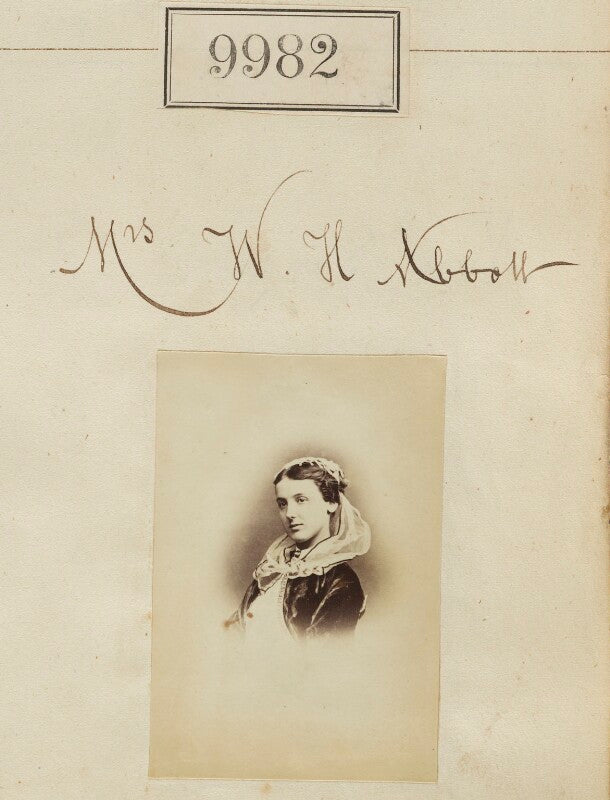 9982
Mrs W. H Abbott